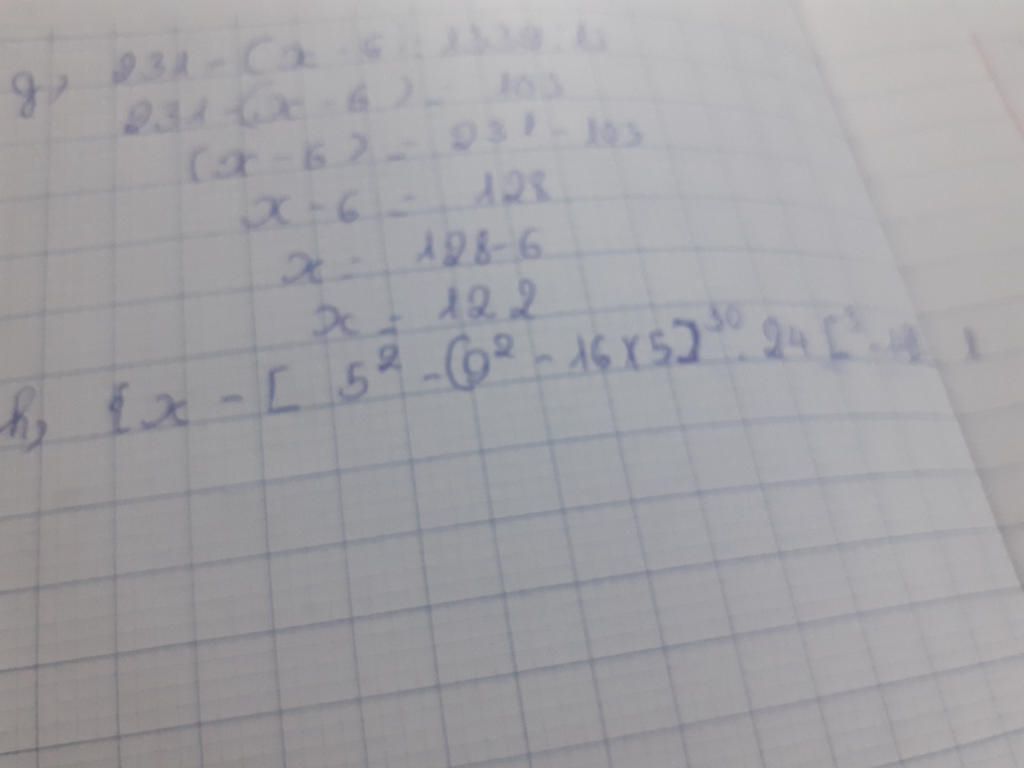 g, 231 - (x - 6 : 1339 : 13
231 - (x - 6) = 103
(x - 6) = 231 - 103
x - 6 = 128
x = 128 - 6
x = 122
h, {x - [ 5² - (9² - 16 × 5]³⁰ . 24 [³